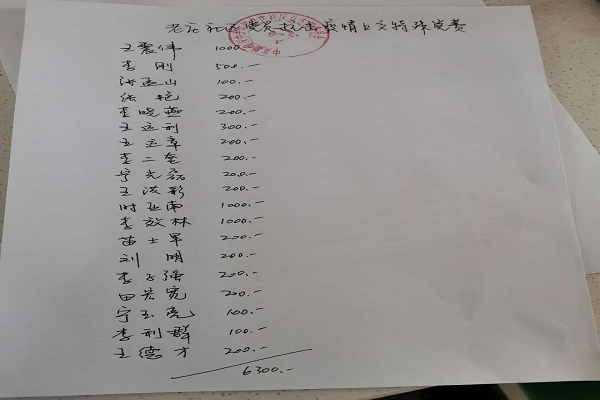 老店社区党员抗击疫情上交特殊党费
王震伟 1000.-
李刚 500.-
张孟山 100.-
张艳 200.-
李晓燕 200.-
王运利 300.-
王玉章 200.-
李二奎 200.-
宁光磊 200.-
王洪彩 200.-
时亚南 1000.-
李效林 1000.-
苗士军 200.-
刘明 200.-
李子强 200.-
田宏宽 200.-
宁玉亮 100.-
李利群 100.-
王德才 200.-
6300.-